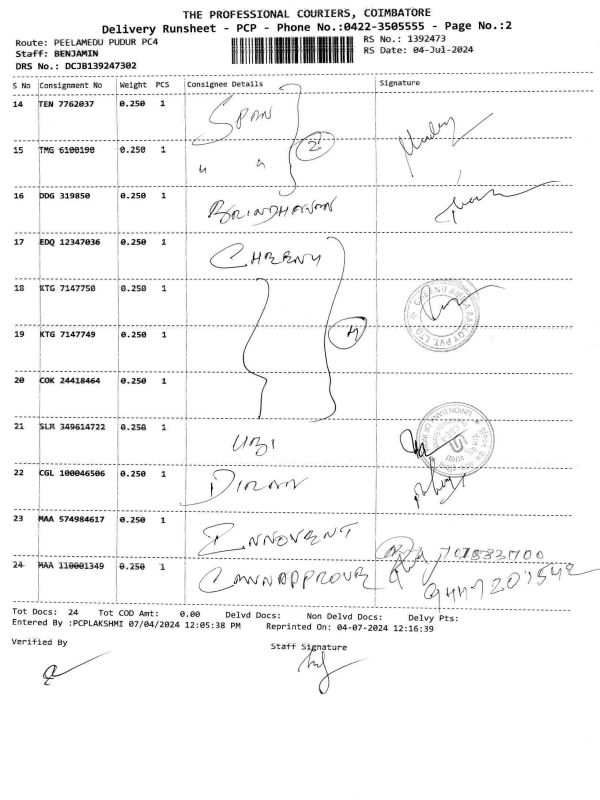 THE PROFESSIONAL COURIERS, COIMBATORE
Delivery Runsheet - PCP - Phone No.:0422-3505555 - Page No.:2
Route: PEELAMEDU PUDUR PC4 RS No.: 1392473
Staff: BENJAMIN RS Date: 04-Jul-2024
DRS No.: DCJB139247302
S No Consignment No Weight PCS Consignee Details Signature
14 TEN 7762037 0.250 1 SPAN
15 TMG 6100190 0.250 1 " " 2
16 DDG 319850 0.250 1 BRINDHAVAN
17 EDQ 12347036 0.250 1 CHEENU
18 KTG 7147750 0.250 1
19 KTG 7147749 0.250 1 4
20 COK 24418464 0.250 1
21 SLM 349614722 0.250 1 UBI
22 CGL 100046506 0.250 1
23 MAA 574984617 0.250 1 INNOVENT
24 MAA 110001349 0.250 1 CANNAPPROVE
Tot Docs: 24 Tot COD Amt: 0.00 Delvd Docs: Non Delvd Docs: Delvy Pts:
Entered By :PCPLAKSHMI 07/04/2024 12:05:38 PM Reprinted On: 04-07-2024 12:16:39
Verified By Staff Signature